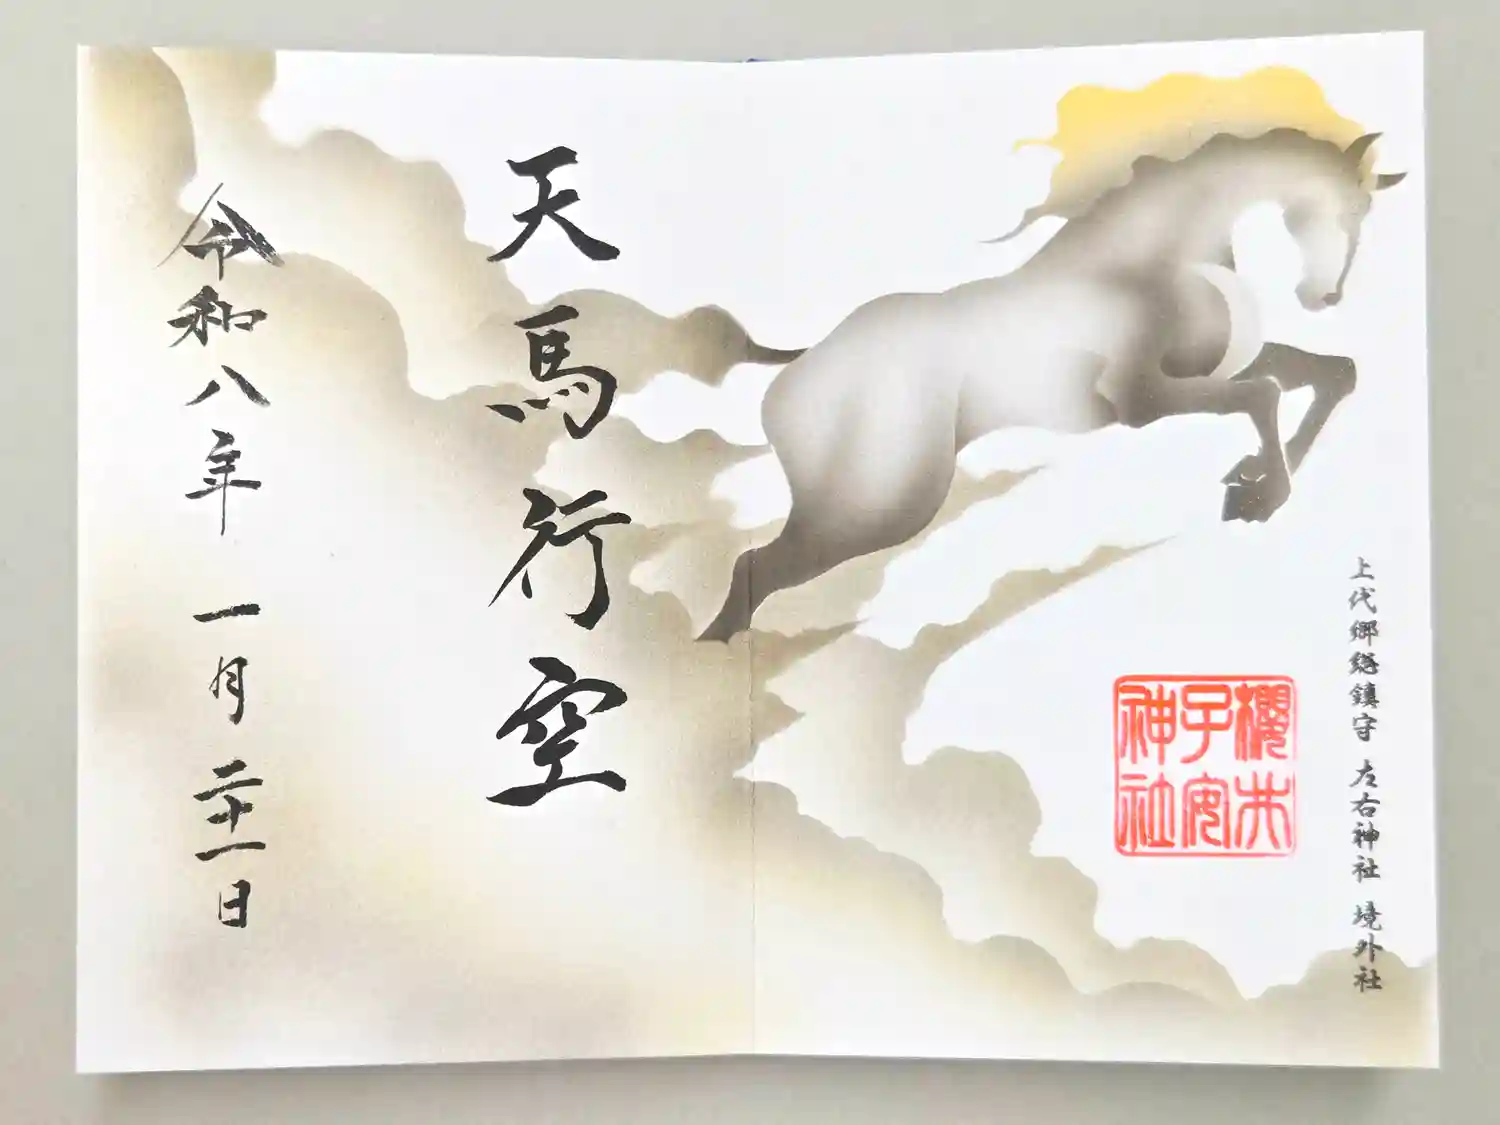 上代郷総鎮守 左右神社 境外社
櫻井
子安
神社
天馬行空
令和八年 一月 二十一日